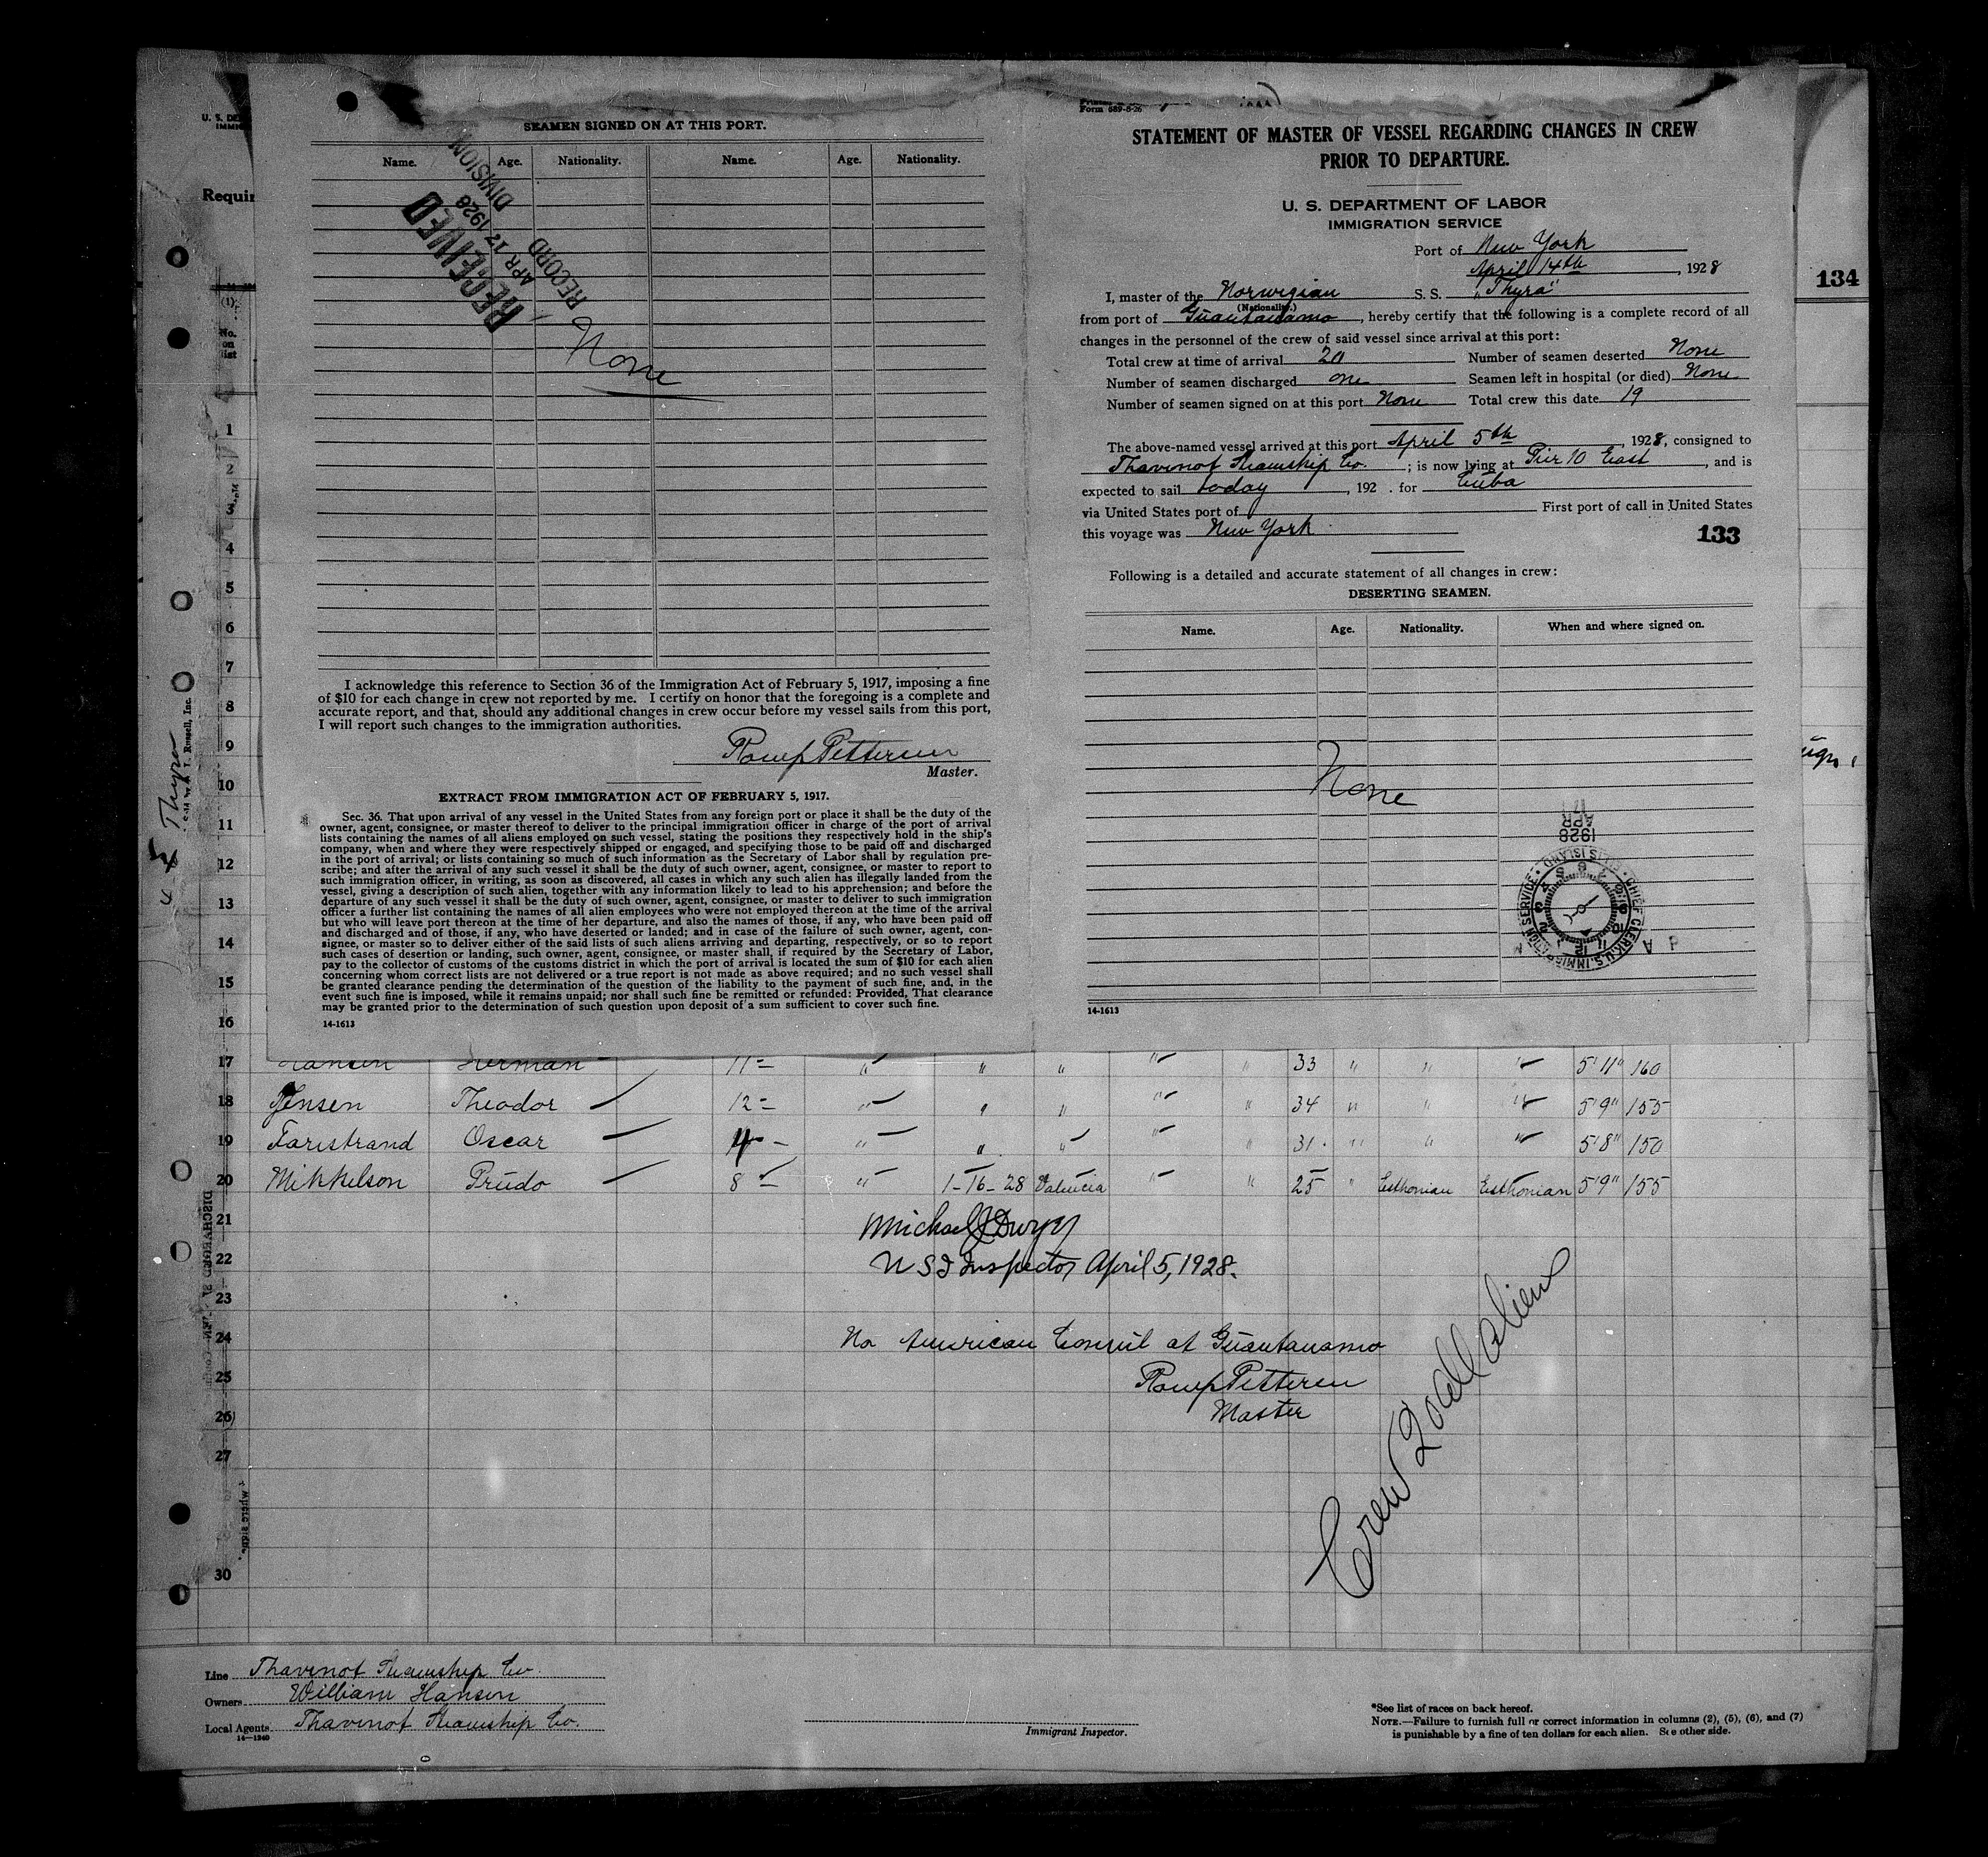 SEAMEN SIGNED ON AT THIS PORT.
Name. Age. Nationality. Name. Age. Nationality.
RECEIVED
APR 17 1928
RECORD DIVISION
None
I acknowledge this reference to Section 36 of the Immigration Act of February 5, 1917, imposing a fine
of $10 for each change in crew not reported by me. I certify on honor that the foregoing is a complete and
accurate report, and that, should any additional changes in crew occur before my vessel sails from this port,
I will report such changes to the immigration authorities.
Pettersen
Master.
EXTRACT FROM IMMIGRATION ACT OF FEBRUARY 5, 1917.
Sec. 36. That upon arrival of any vessel in the United States from any foreign port or place it shall be the duty of the
owner, agent, consignee, or master thereof to deliver to the principal immigration officer in charge of the port of arrival
lists containing the names of all aliens employed on such vessel, stating the positions they respectively hold in the ship's
company, when and where they were respectively shipped or engaged, and specifying those to be paid off and discharged
in the port of arrival; or lists containing so much of such information as the Secretary of Labor shall by regulation pre-
scribe; and after the arrival of any such vessel it shall be the duty of such owner, agent, consignee, or master to report to
such immigration officer, in writing, as soon as discovered, all cases in which any such alien has illegally landed from the
vessel, giving a description of such alien, together with any information likely to lead to his apprehension; and before the
departure of any such vessel it shall be the duty of such owner, agent, consignee, or master to deliver to such immigration
officer a further list containing the names of all alien employees who were not employed thereon at the time of the arrival
but who will leave port thereon at the time of her departure, and also the names of those, if any, who have been paid off
and discharged and of those, if any, who have deserted or landed; and in case of the failure of such owner, agent, con-
signee, or master so to deliver either of the said lists of such aliens arriving and departing, respectively, or so to report
such cases of desertion or landing, such owner, agent, consignee, or master shall, if required by the Secretary of Labor,
pay to the collector of customs of the customs district in which the port of arrival is located the sum of $10 for each alien
concerning whom correct lists are not delivered or a true report is not made as above required; and no such vessel shall
be granted clearance pending the determination of the question of the liability to the payment of such fine, and, in the
event such fine is imposed, while it remains unpaid; nor shall such fine be remitted or refunded: Provided, That clearance
may be granted prior to the determination of such question upon deposit of a sum sufficient to cover such fine.
14-1613
Form 689-8-26
STATEMENT OF MASTER OF VESSEL REGARDING CHANGES IN CREW
PRIOR TO DEPARTURE.
U. S. DEPARTMENT OF LABOR
IMMIGRATION SERVICE
Port of New York
April 14th, 1928
I, master of the Norwegian S. S. "Thyra"
(Nationality.)
from port of Guantanamo, hereby certify that the following is a complete record of all
changes in the personnel of the crew of said vessel since arrival at this port:
Total crew at time of arrival 20 Number of seamen deserted None
Number of seamen discharged one Seamen left in hospital (or died) None
Number of seamen signed on at this port None Total crew this date 19
The above-named vessel arrived at this port April 5th, 1928, consigned to
Thavenot Steamship Co.; is now lying at Pier 10 East, and is
expected to sail today, 192 . for Cuba
via United States port of First port of call in United States
this voyage was New York
133
Following is a detailed and accurate statement of all changes in crew:
DESERTING SEAMEN.
Name. Age. Nationality. When and where signed on.
None
1928
APR
17
CHIEF CLERK U.S. IMMIGRATION SERVICE ELLIS ISLAND
14-1613
134
Requir
Thyra
1
2
3
4
5
6
7
8
9
10
11
12
13
14
15
16
17 Hansen Herman 11 " " " " " 33 " " " 5'11" 160
18 Jensen Theodor 12 " " " " " 34 " " " 5'9" 155
19 Farestrand Oscar 4 " " " " " 31 " " " 5'8" 150
20 Mikkelson Prudo 8 " 1-16-28 Valencia " " 25 " Esthonian Esthonian 5'9" 155
21 Michael J Dwyer
22 U S I Inspector April 5, 1928.
23
24 No American Consul at Guantanamo
25 Pettersen
26 Master
27
30
Crew 20 all alien
Line Thavenot Steamship Co.
Owners William Hansen
Local Agents Thavenot Steamship Co.
14-1240
Immigrant Inspector.
*See list of races on back hereof.
NOTE.—Failure to furnish full or correct information in columns (2), (5), (6), and (7)
is punishable by a fine of ten dollars for each alien. See other side.